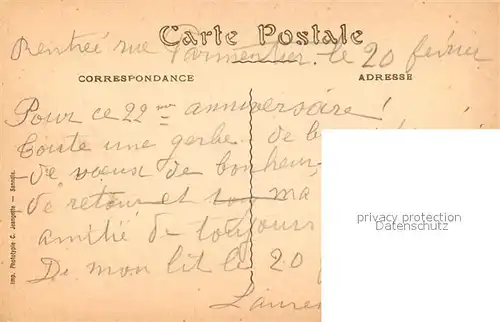 Carte Postale
Rentrée rue Parmentier le 20 février
CORRESPONDANCE
ADRESSE
Pour ce 22me anniversaire!
Toute une gerbe de
de vœux de bonheur
de retour et ma
amitié de toujours
De mon lit le 20
Lauren
Imp. Phototypie C. Jeangette — Sannois.
privacy protection
DatenschutzMaske